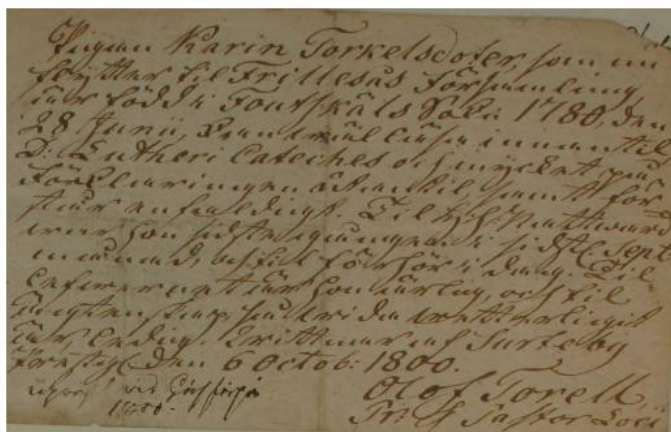 Pigan Karin Torkelsdoter, som nu
flytter til Frillesås Församling
är född i Tourskåls Sokn 1780, den
28 Junii, kan wäl läsa innantil
D: Lutheri Cateches och mycket på
Förklaringen utantil samt för-
står enfaldigt. Til H:s Nattward
war hon sidsta gången i sidstl. Sept.
månad, och i förhör i dag. Til
lefwernet är hon ärlig, och til
ägtenskap så vida wetterligit
är ledig. Wittnar af Surteby
Prästg. den 6 Octob: 1800.
Olof Torell,
Pastor Loci
uppvist vid
1800.